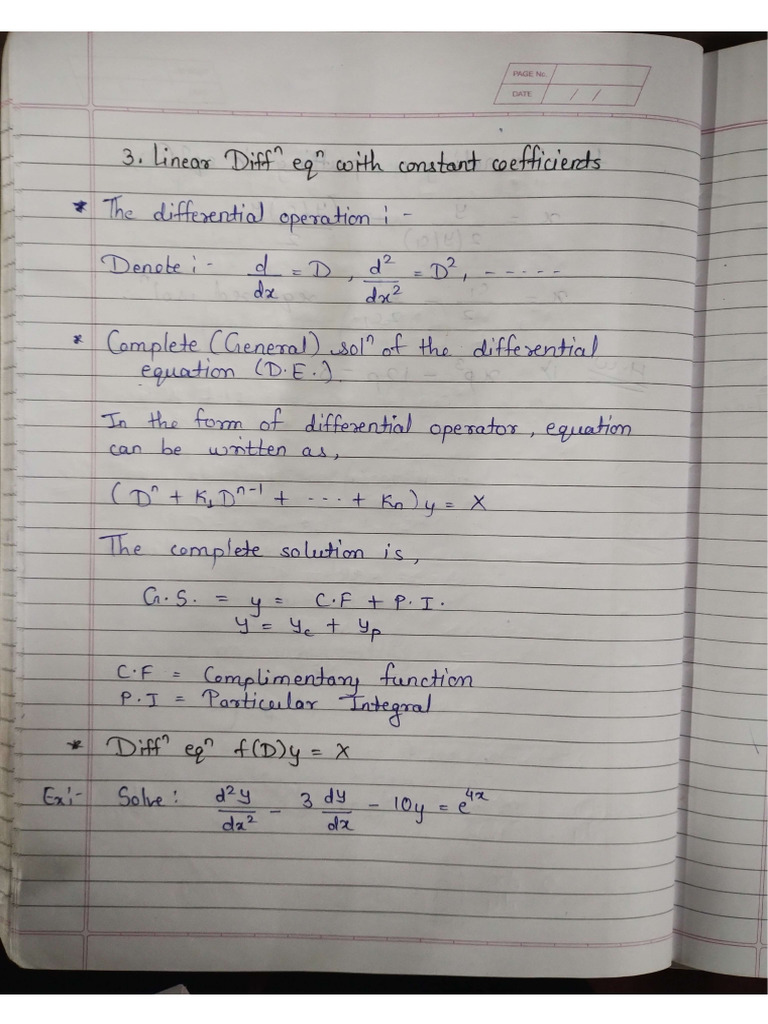 PAGE No.
DATE / /
3. Linear Diffⁿ eqⁿ with constant coefficients
* The differential operation :-
Denote :- d/dx = D , d²/dx² = D², - - - - -
* Complete (General) solⁿ of the differential
equation (D.E.).
In the form of differential operator, equation
can be written as,
(Dⁿ + K₁Dⁿ⁻¹ + ... + Kn)y = X
The complete solution is,
G.S. = y = C.F + P.I.
y = yc + yp
C.F = Complimentary function
P.I = Particular Integral
* Diffⁿ eqⁿ f(D)y = X
Ex:- Solve : d²y/dx² - 3 dy/dx - 10y = e⁴ˣ